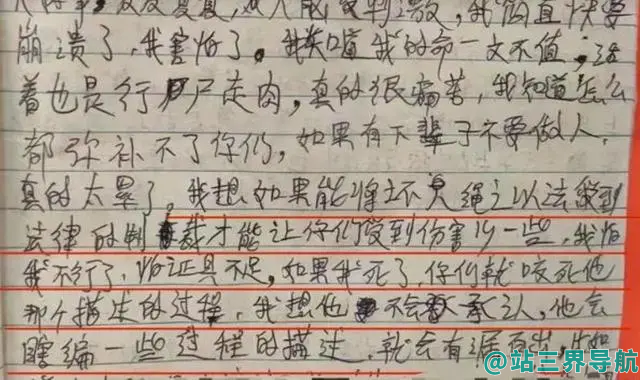 反反复复,
崩溃了,我害怕了。我知道我的命一文不值,活
着也是行尸走肉,真的很痛苦,我知道怎么
都弥补不了你们,如果有下辈子不要做人,
真的太累了。我想如果能将坏人绳之以法受到
法律的制裁才能让你们受到伤害少一些,我怕
我不行了,怕证具不足,如果我死了,你们就咬死他
那个描述的过程,我想他不会承认,他会
瞎编一些过程的描述,就会有漏百出,
@站三界导航